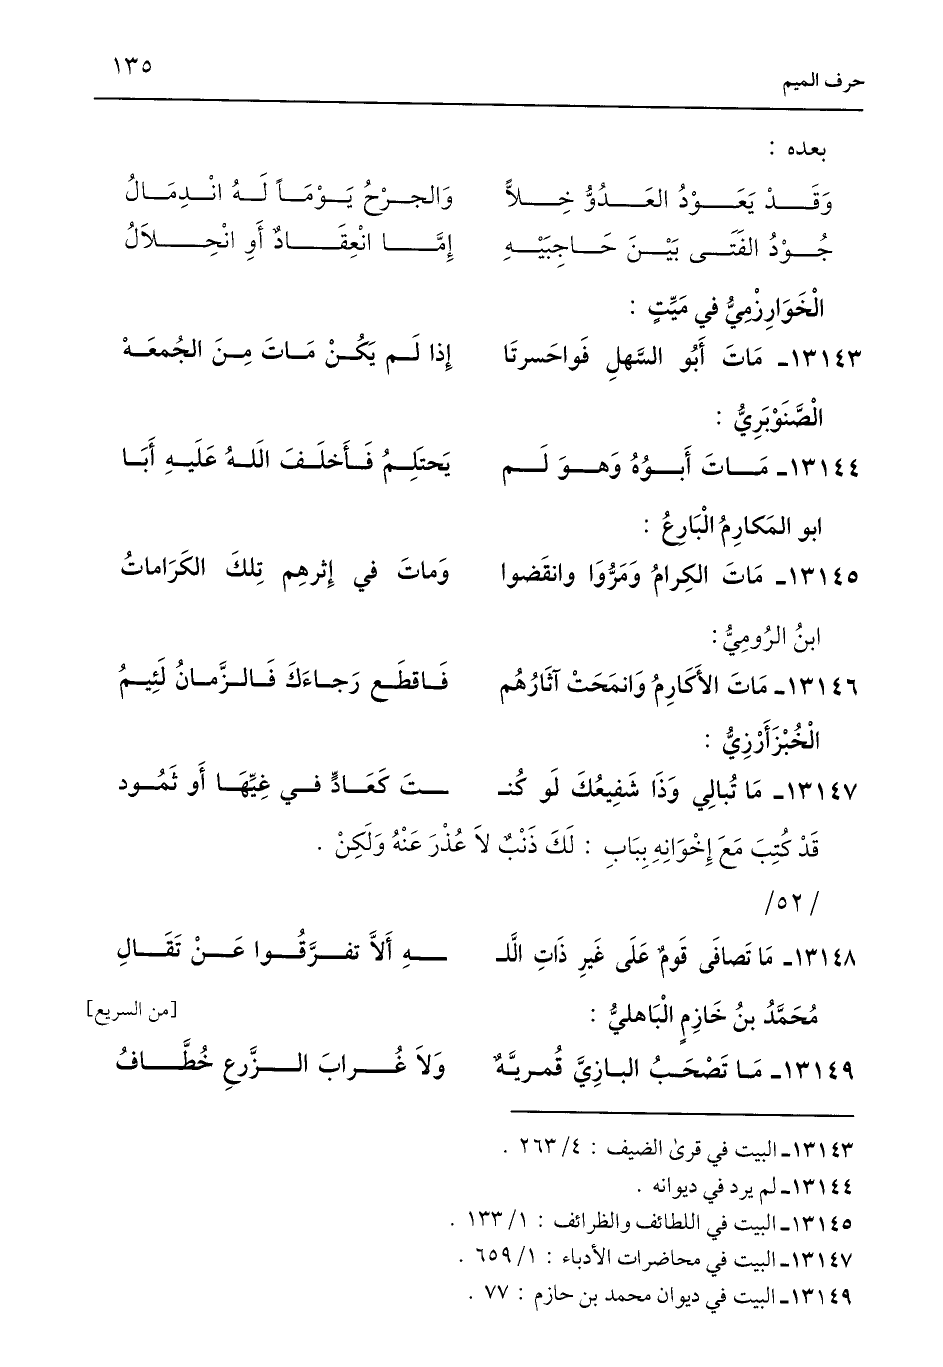 حرف الميم ١٣٥
بعده :
وَقَدْ يَعَوْدُ العَدُوُّ خِلاًّ وَالجرْحُ يَوْمَاً لَهُ انْدِمَالُ
جُوْدُ الفَتَى بَيْنَ حَاجِبَيْهِ إمَّا انْعِقَادٌ أَوِ انْحِلاَلُ
الْخَوَارِزْمِيُّ في مَيِّتٍ :
١٣١٤٣ـ مَاتَ أَبُو السَّهلِ فَواحَسرتَا إذا لَم يَكُنْ مَاتَ مِنَ الجُمعَهْ
الْصَّنَوْبَرِيُّ :
١٣١٤٤ـ مَاتَ أَبوُهُ وَهوَ لَم يَحتَلِمُ فَأَخلَفَ اللهُ عَلَيهِ أبَا
ابو المَكارِمُ الْبَارِعُ :
١٣١٤٥ـ مَاتَ الكِرامُ وَمَرُّوَا وانقَضوا وَماتَ في إثرهِم تِلكَ الكَرَاماتُ
ابنُ الرُوميُّ :
١٣١٤٦ـ مَاتَ الأَكَارِمُ وَانمَحَتْ آثَارُهُم فَاقطَع رَجاءَكَ فَالزَّمانُ لَئِيمُ
الْخُبْزَأَرْزِيُّ :
١٣١٤٧ـ مَا تُبالِي وَذَا شَفِيعُكَ لَو كُنـ ـتَ كَعَادٍّ في غِيِّهَا أَو ثَمُود
قَدْ كُتِبَ مَعَ إخْوَانِهِ بِبَابِ : لَكَ ذَنْبٌ لاَ عُذْرَ عَنْهُ وَلَكِنْ .
/٥٢/
١٣١٤٨ـ مَا تَصافَى قَومٌ عَلَى غَيرِ ذَاتِ اللـ ـهِ أَلاَّ تفرَّقُوا عَنْ تَقَالِ
مُحَمَّدُ بنُ خَازِمٍ الْبَاهليُّ : [من السريع]
١٣١٤٩ـ مَا تَصْحَبُ البازِيَّ قُمريَّةٌ وَلاَ غُرابَ الزَّرعِ خُطَّافُ
١٣١٤٣ـ البيت في قرىٰ الضيف : ٤/ ٢٦٣ .
١٣١٤٤ـ لم يرد في ديوانه .
١٣١٤٥ـ البيت في اللطائف والظرائف : ١/ ١٣٣ .
١٣١٤٧ـ البيت في محاضرات الأدباء : ١/ ٦٥٩ .
١٣١٤٩ـ البيت في ديوان محمد بن حازم : ٧٧ .